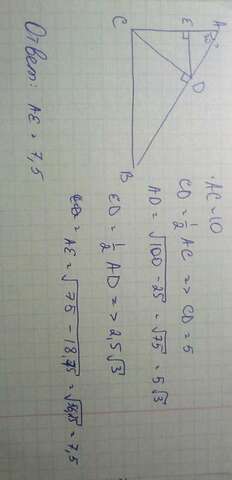 C
E
A
D
B
AC=10
CD = 1/2 AC => CD = 5
AD = √100 - 25 = √75 = 5√3
ED = 1/2 AD => 2,5√3
= AE = √75 - 18,75 = = 7,5
Ответ: AE = 7,5